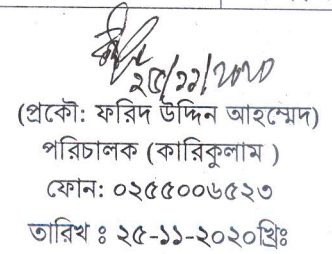 ২৫/১১/২০২০
(প্রকৌ: ফরিদ উদ্দিন আহম্মেদ)
পরিচালক (কারিকুলাম )
ফোন: ০২৫৫০০৬৫২৩
তারিখ ঃ ২৫-১১-২০২০খ্রিঃ